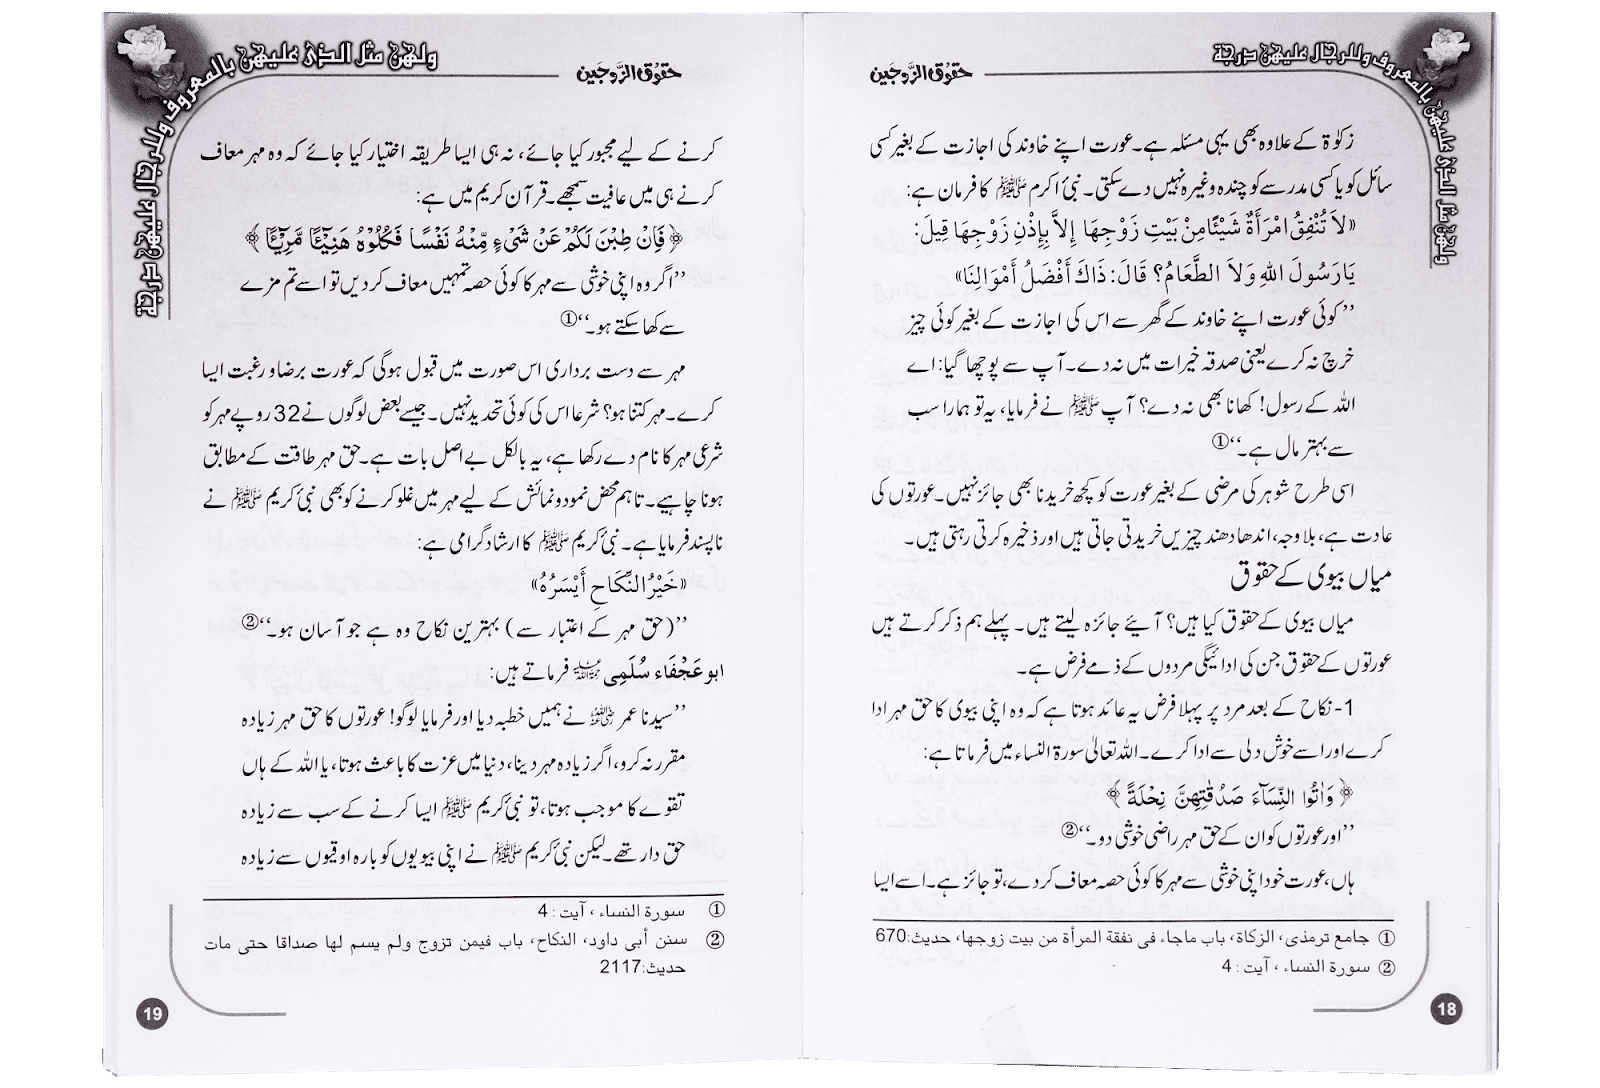 حقوق الزوجین
ولهن مثل الذی علیهن بالمعروف وللرجال علیهن درجة
زکوٰۃ کے علاوہ بھی یہی مسئلہ ہے۔ عورت اپنے خاوند کی اجازت کے بغیر کسی
سائل کو یا کسی مدرسے کو چندہ وغیرہ نہیں دے سکتی۔ نبیٔ اکرم ﷺ کا فرمان ہے:
«لاَ تُنْفِقُ امْرَأَةٌ شَيْئًا مِنْ بَيْتِ زَوْجِهَا إِلاَّ بِإِذْنِ زَوْجِهَا قِيلَ:
يَارَسُولَ اللهِ وَلاَ الطَّعَامُ؟ قَالَ: ذَاكَ أَفْضَلُ أَمْوَالِنَا»
’’کوئی عورت اپنے خاوند کے گھر سے اس کی اجازت کے بغیر کوئی چیز
خرچ نہ کرے یعنی صدقہ خیرات میں نہ دے۔ آپ سے پوچھا گیا: اے
اللہ کے رسول! کھانا بھی نہ دے؟ آپ ﷺ نے فرمایا، یہ تو ہمارا سب
سے بہتر مال ہے۔‘‘①
اسی طرح شوہر کی مرضی کے بغیر عورت کو کچھ خریدنا بھی جائز نہیں۔ عورتوں کی
عادت ہے، بلاوجہ، اندھا دھند چیزیں خریدتی جاتی ہیں اور ذخیرہ کرتی رہتی ہیں۔
میاں بیوی کے حقوق
میاں بیوی کے حقوق کیا ہیں؟ آئیے جائزہ لیتے ہیں۔ پہلے ہم ذکر کرتے ہیں
عورتوں کے حقوق جن کی ادائیگی مردوں کے ذمے فرض ہے۔
1- نکاح کے بعد مرد پر پہلا فرض یہ عائد ہوتا ہے کہ وہ اپنی بیوی کا حق مہر ادا
کرے اور اسے خوش دلی سے ادا کرے۔ اللہ تعالیٰ سورۃ النساء میں فرماتا ہے:
﴿ وَاٰتُوا النِّسَآءَ صَدُقٰتِهِنَّ نِحْلَةً ﴾
’’اور عورتوں کو ان کے حق مہر راضی خوشی دو۔‘‘②
ہاں، عورت خود اپنی خوشی سے مہر کا کوئی حصہ معاف کر دے، تو جائز ہے۔ اسے ایسا
① جامع ترمذی، الزکاة، باب ماجاء فی نفقة المرأة من بیت زوجها، حدیث:670
② سورة النساء ، آیت : 4
18
حقوق الزوجین
ولهن مثل الذی علیهن بالمعروف وللرجال علیهن درجة
کرنے کے لیے مجبور کیا جائے، نہ ہی ایسا طریقہ اختیار کیا جائے کہ وہ مہر معاف
کرنے ہی میں عافیت سمجھے۔ قرآن کریم میں ہے:
﴿ فَاِنْ طِبْنَ لَكُمْ عَنْ شَیْءٍ مِّنْهُ نَفْسًا فَكُلُوْهُ هَنِیْٓئًا مَّرِیْٓئًا ﴾
’’اگر وہ اپنی خوشی سے مہر کا کوئی حصہ تمہیں معاف کر دیں تو اسے تم مزے
سے کھا سکتے ہو۔‘‘①
مہر سے دست برداری اس صورت میں قبول ہوگی کہ عورت برضا و رغبت ایسا
کرے۔ مہر کتنا ہو؟ شرعا اس کی کوئی تحدید نہیں۔ جیسے بعض لوگوں نے 32 روپے مہر کو
شرعی مہر کا نام دے رکھا ہے، یہ بالکل بے اصل بات ہے۔ حق مہر طاقت کے مطابق
ہونا چاہیے۔ تاہم محض نمود و نمائش کے لیے مہر میں غلو کرنے کو بھی نبیٔ کریم ﷺ نے
ناپسند فرمایا ہے۔ نبیٔ کریم ﷺ کا ارشاد گرامی ہے:
«خَيْرُ النِّكَاحِ أَيْسَرُهُ»
’’(حق مہر کے اعتبار سے) بہترین نکاح وہ ہے جو آسان ہو۔‘‘②
ابو عَجْفَاء سُلَمِی رحمہ اللہ فرماتے ہیں:
’’سیدنا عمر رضی اللہ عنہ نے ہمیں خطبہ دیا اور فرمایا لوگو! عورتوں کا حق مہر زیادہ
مقرر نہ کرو، اگر زیادہ مہر دینا، دنیا میں عزت کا باعث ہوتا، یا اللہ کے ہاں
تقوے کا موجب ہوتا، تو نبیٔ کریم ﷺ ایسا کرنے کے سب سے زیادہ
حق دار تھے۔ لیکن نبیٔ کریم ﷺ نے اپنی بیویوں کو بارہ اوقیوں سے زیادہ
① سورة النساء ، آیت : 4
② سنن أبی داود، النکاح، باب فیمن تزوج ولم یسم لها صداقا حتی مات
حدیث:2117
19